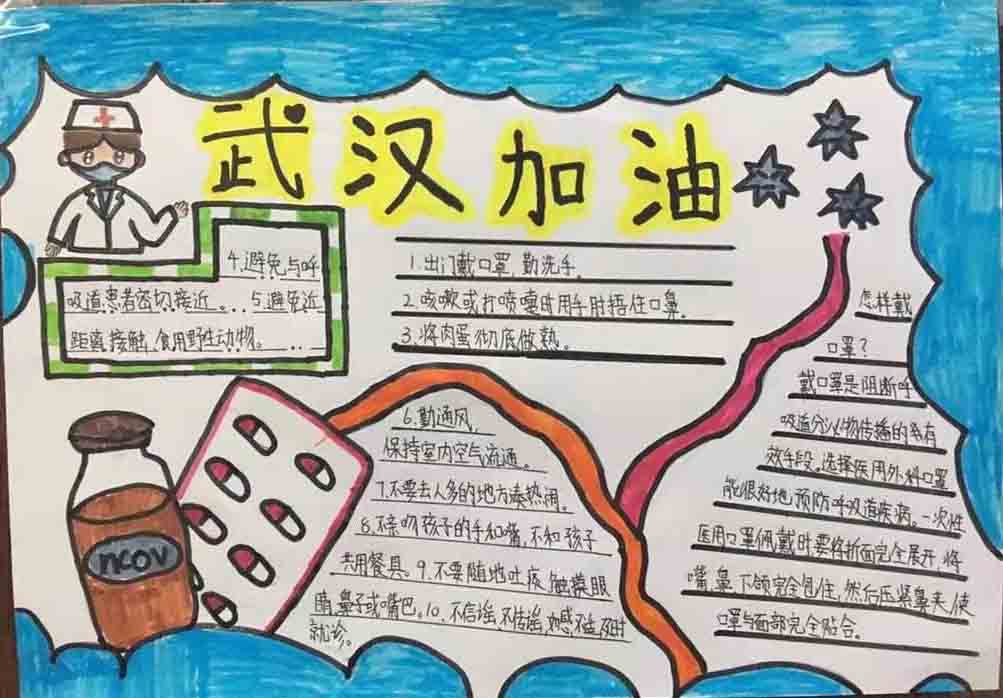 武汉加油
1.出门戴口罩,勤洗手。
2.咳嗽或打喷嚏时用手肘捂住口鼻。
3.将肉蛋彻底做熟。
4.避免与呼
吸道患者密切接近。..5.避免近
距离接触,食用野性动物。...
6.勤通风,
保持室内空气流通。
7.不要去人多的地方凑热闹。
8.不亲吻孩子的手和嘴,不和孩子
共用餐具。9.不要随地吐痰,触摸眼
睛,鼻子或嘴巴。10.不信谣,不传谣,如感不适,及时
就诊。
ncov
怎样戴
口罩?
戴口罩是阻断呼
吸道分泌物传播的有
效手段,选择医用外科口罩
能很好地预防呼吸道疾病。一次性
医用口罩佩戴时要将折面完全展开,将
嘴,鼻,下颌完全包住,然后压紧鼻夹,使
口罩与面部完全贴合。